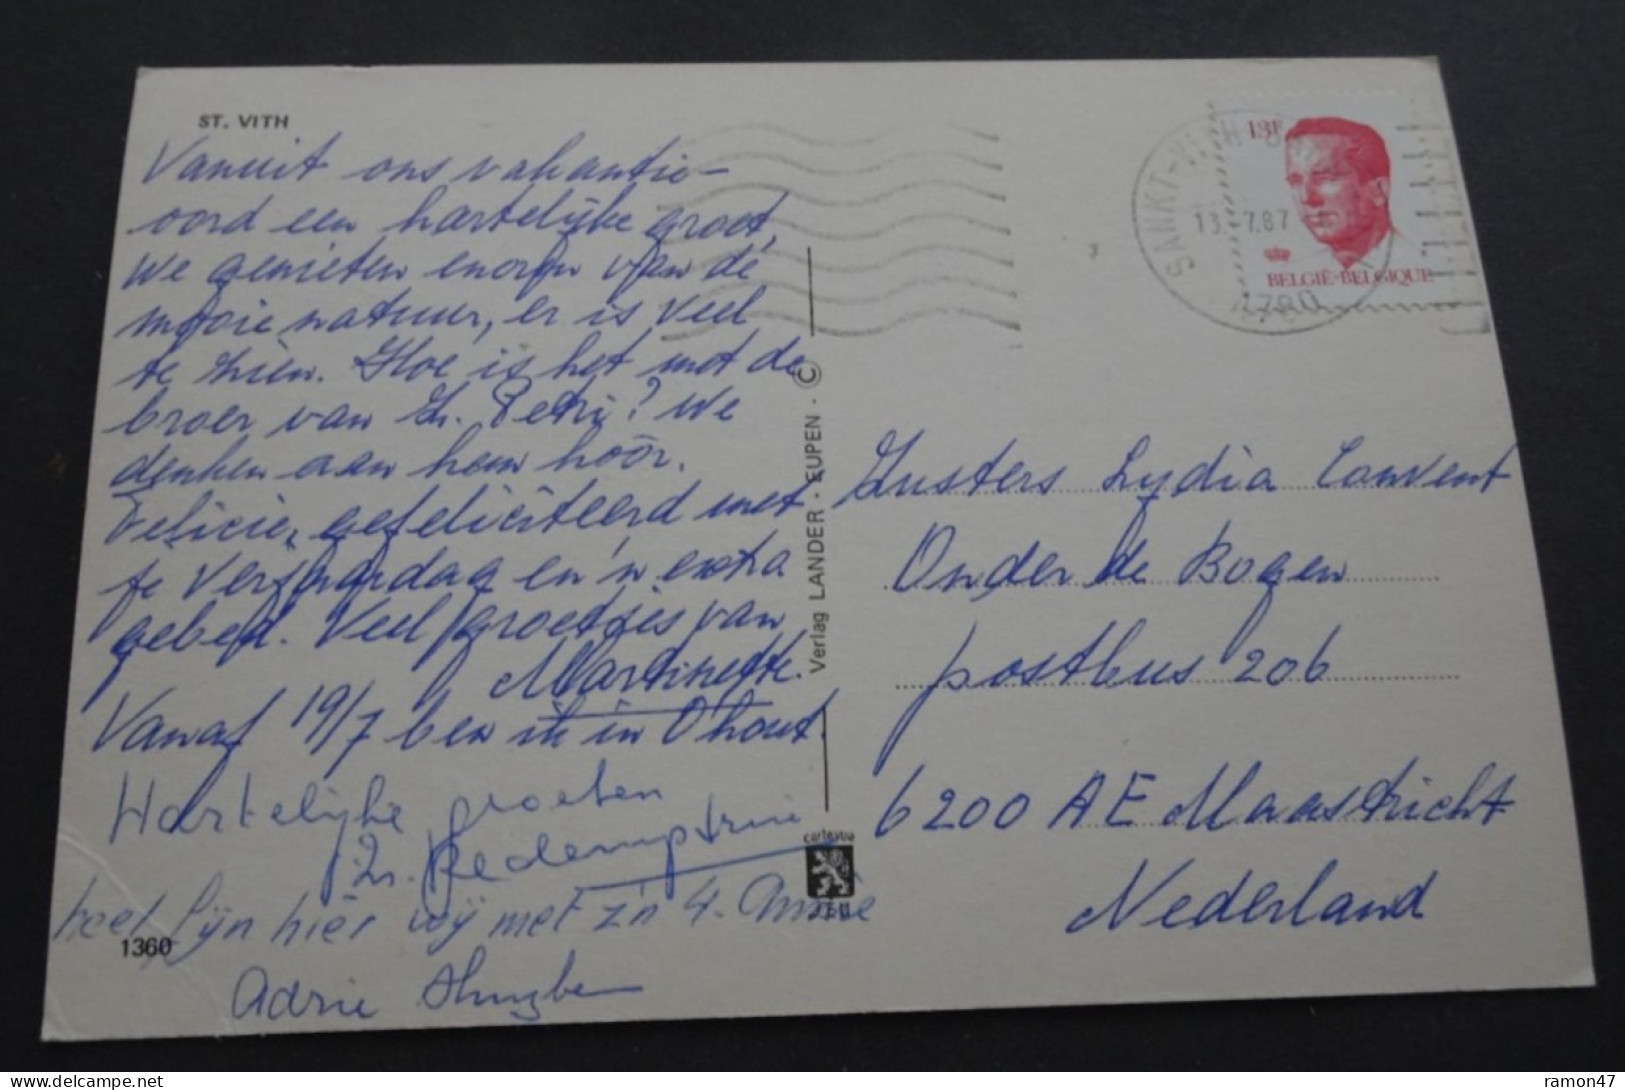 ST. VITH
Vanuit ons vakantie-
oord een hartelijke groet,
we genieten enorm van de
mooie natuur, er is veel
te zien. Hoe is het met de
broer van Zr. Petri? We
denken aan hem hoor.
Felicie, gefeliciteerd met
je verjaardag en 'n extra
gebed. Veel groetjes van
Martinette.
Vanaf 19/7 ben ik in O'hout.
Hartelijke groeten
Zr. Redemptrix
heel fijn hier wij met z'n 4. Annie
Adrie
1360
Verlag LANDER - EUPEN - ©
cartexva
SANKT-VITH
13.-7.87
4780
13F
BELGIË-BELGIQUE
Zusters Lydia Convent
Onder de Bogen
postbus 206
6200 AE Maastricht
Nederland
ramon47